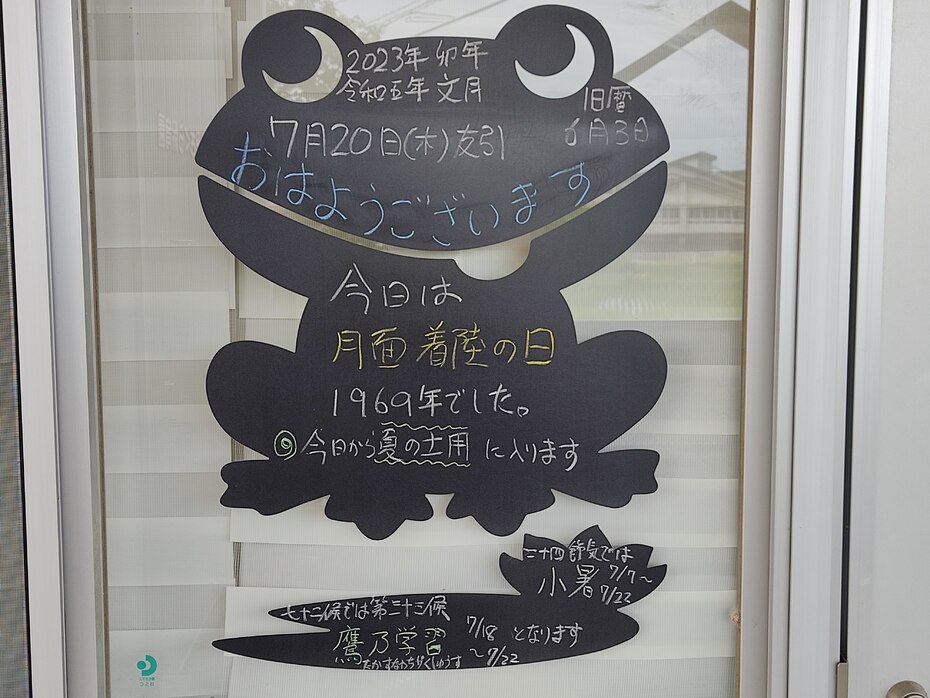 2023年 卯年
令和五年 文月
旧暦
7月20日(木)友引
6月3日
おはようございます
今日は
月面着陸の日
1969年でした。
◎今日から夏の土用に入ります
二十四節気では
小暑 7/7～
7/22
七十二候では第三十三候
鷹乃学習 7/18 となります
たかすなわちがくしゅうす ～7/22